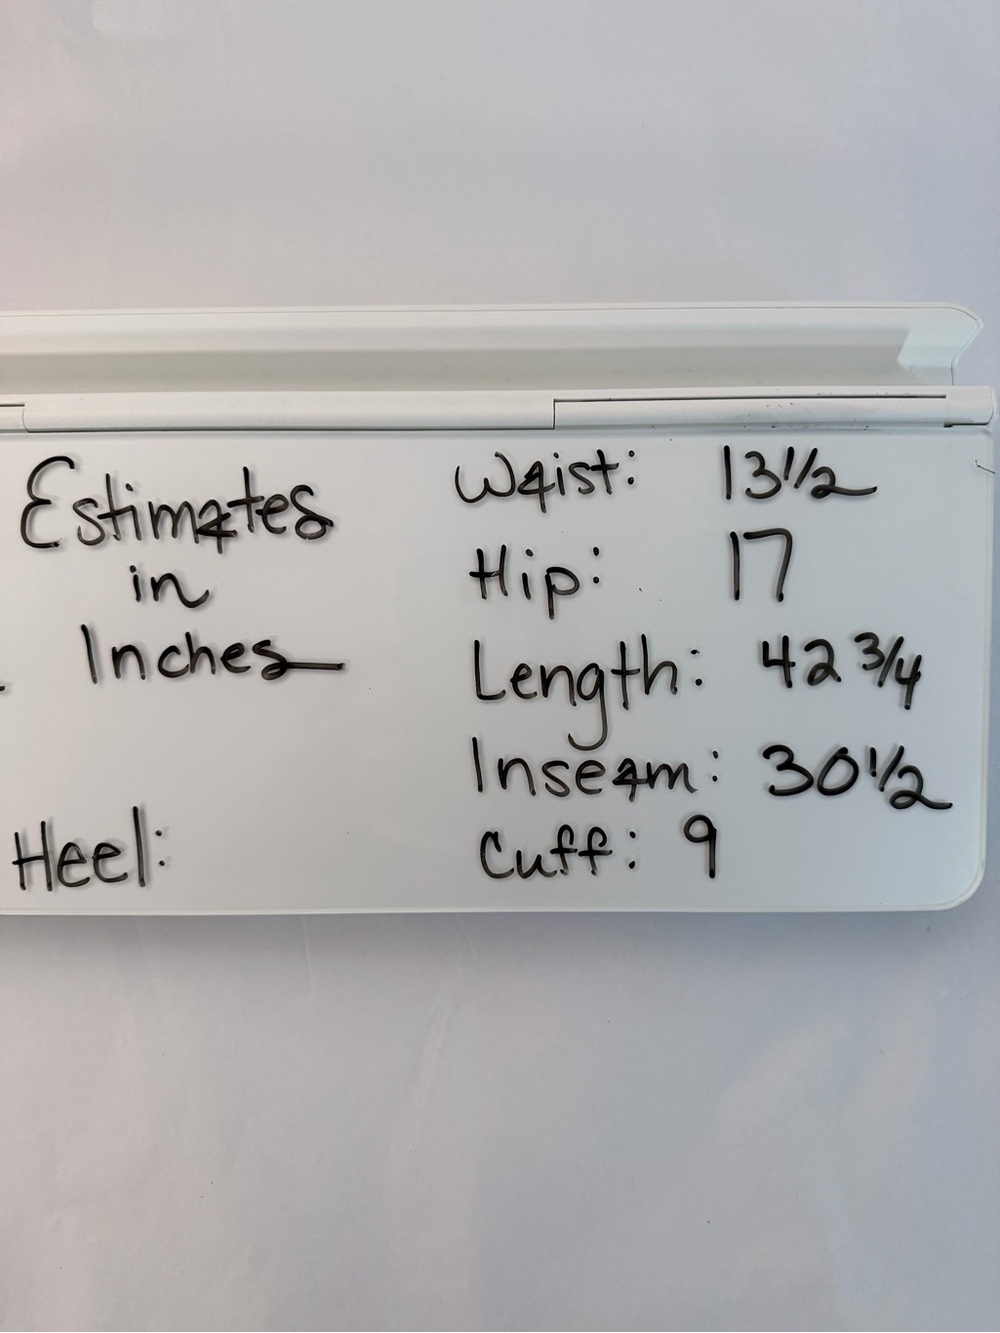 Estimates
in
Inches
Heel:
Waist: 13 1/2
Hip: 17
Length: 42 3/4
Inseam: 30 1/2
Cuff: 9